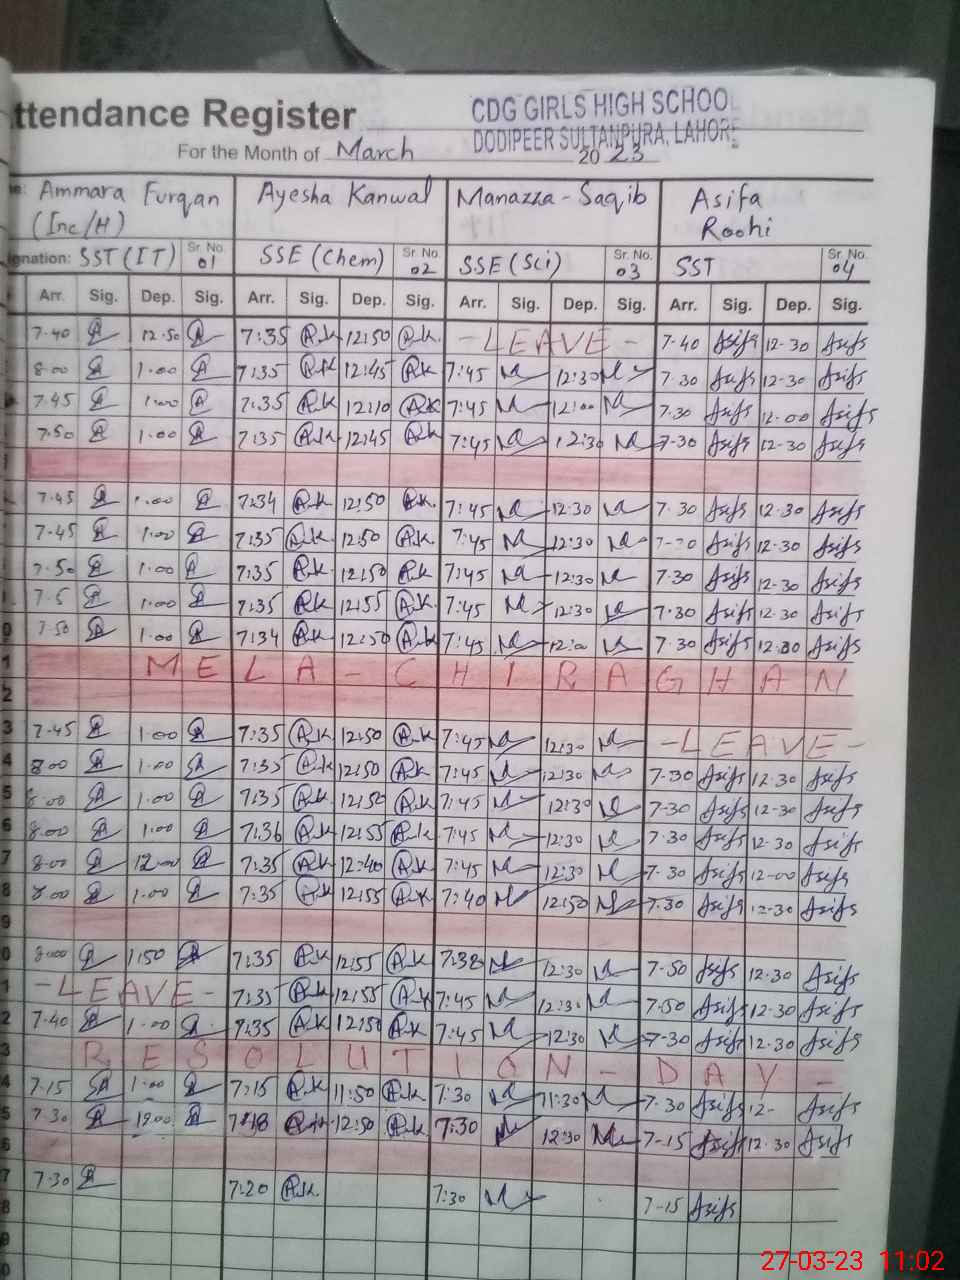 ttendance Register
CDG GIRLS HIGH SCHOOL
DODIPEER SULTANPURA, LAHORE
For the Month of March 2023
e: Ammara Furqan (Inc/H) Ayesha Kanwal Manazza-Saqib Asifa Roohi
ignation: SST (IT) Sr. No. 01 SSE (Chem) Sr. No. 02 SSE (Sci) Sr. No. 03 SST Sr. No. 04
Arr. Sig. Dep. Sig. Arr. Sig. Dep. Sig. Arr. Sig. Dep. Sig. Arr. Sig. Dep. Sig.
7-40 12-50 7:35 A.k 12:50 A.k. -LEAVE- 7-40 Asifs 12-30 Asifs
8-00 1-00 7:35 A.k 12:45 A.k 7:45 12:30 7-30 Asifs 12-30 Asifs
7-45 1-00 7:35 A.k 12:10 A.k 7:45 12:00 7-30 Asifs 12-00 Asifs
7-50 1-00 7:35 A.k 12:45 A.k 7:45 12:30 7-30 Asifs 12-30 Asifs
7-45 1-00 7:34 A.k 12:50 A.k. 7:45 12:30 7-30 Asifs 12-30 Asifs
7-45 1-00 7:35 A.k 12:50 A.k. 7:45 12:30 Asifs 12-30 Asifs
7-50 1-00 7:35 A.k 12:50 A.k 7:45 12:30 7-30 Asifs 12-30 Asifs
7-5 1-00 7:35 A.k 12:55 A.k. 7:45 12:30 7-30 Asifs 12-30 Asifs
0 7-50 1-00 7:34 A.k 12:50 A.k 7:45 12:00 7-30 Asifs 12-30 Asifs
1 MELA-CHIRAGHAN
2
3 7-45 1-00 7:35 A.k 12:50 A.k 7:45 12:30 -LEAVE-
4 8-00 1-00 7:35 A.k 12:50 A.k 7:45 12:30 7-30 Asifs 12-30 Asifs
5 8-00 1-00 7:35 A.k 12:50 A.k 7:45 12:30 7-30 Asifs 12-30 Asifs
6 8-00 1-00 7:36 A.k 12:55 A.k 7:45 12:30 7-30 Asifs 12-30 Asifs
7 8-00 12-00 7:35 A.k 12:40 A.k 7:45 12:30 7-30 Asifs 12-00 Asifs
8 8-00 1-00 7:35 A.k 12:55 A.k 7:40 12:50 7-30 Asifs 12-30 Asifs
9
0 8-00 1:50 7:35 A.k 12:55 A.k 7:38 12:30 7-50 Asifs 12-30 Asifs
1 -LEAVE- 7:35 A.k 12:55 A.k 7:45 12:30 7-50 Asifs 12-30 Asifs
2 7-40 1-00 7:35 A.k 12:50 A.k 7:45 12:30 7-30 Asifs 12-30 Asifs
3 RESOLUTION-DAY-
4 7-15 1-00 7:15 A.k 11:50 A.k 7:30 11:30 7-30 Asifs 12- Asifs
5 7-30 7:18 A.k 12:50 A.k 7:30 12:30 7-15 Asifs 12-30 Asifs
6
7 7-30 7:20 A.k. 7:30 7-15 Asifs
8
9
0
27-03-23 11:02